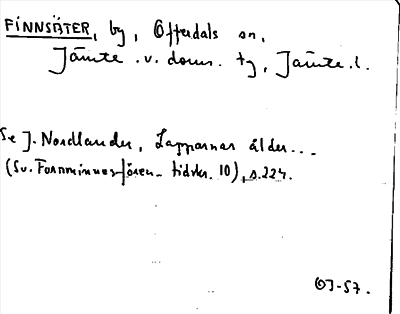 FINNSÄTER, by, Offerdals sn,
Jämte. v. doms. tg, Jämtl. l.
Se J. Nordlander, Lapparnas ålder...
(Sv. Fornminnesfören. tidskr. 10), s. 224.
OJ-57.